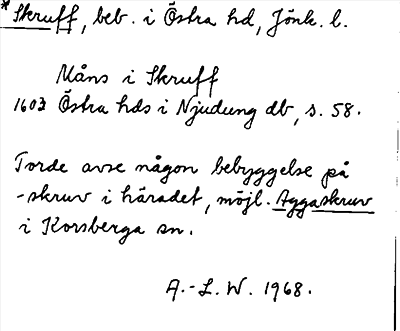 *Skruff, beb. i Östra hd, Jönk. l.
Måns i Skruff
1603 Östra hds i Njudung db, s. 58.
Torde avse någon bebyggelse på
-skruv i häradet, möjl. Aggaskruv
i Korsberga sn.
A.-L. W. 1968.